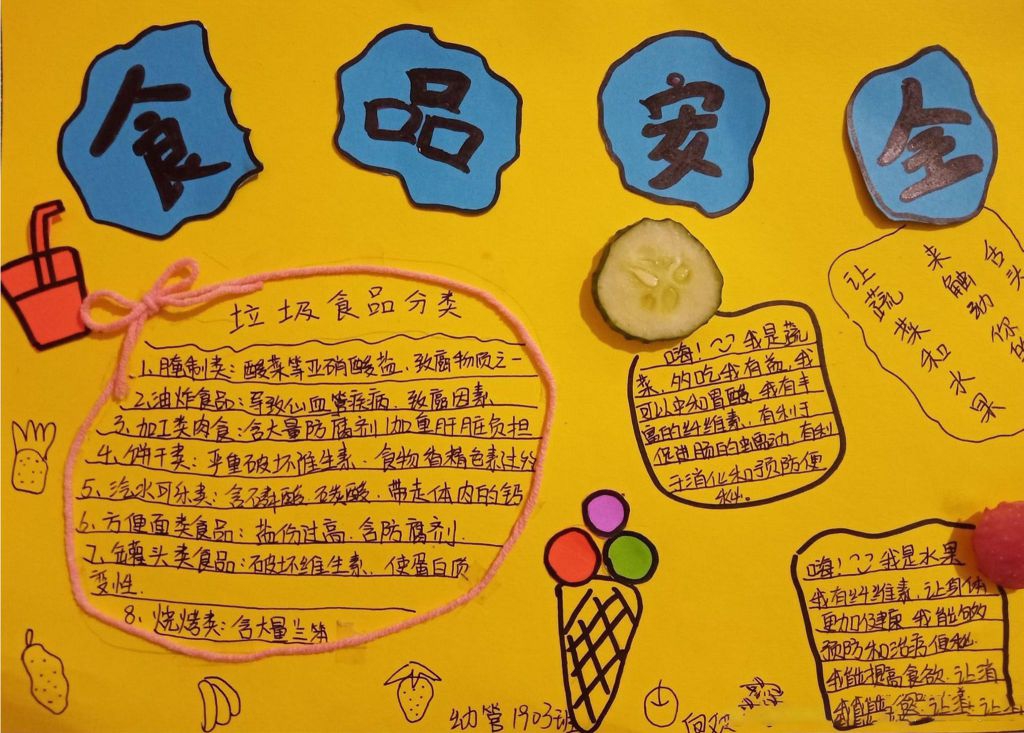 食品安全
垃圾食品分类
1、腌制类：酸菜等亚硝酸盐、致癌物质之一
2、油炸食品：导致心血管疾病、致癌因素
3、加工类肉食：含大量防腐剂 加重肝脏负担
4、饼干类：严重破坏维生素、食物香精色素过多
5、汽水可乐类：含磷酸、碳酸、带走体内的钙
6、方便面类食品：盐份过高、含防腐剂
7、罐头类食品：破坏维生素、使蛋白质
变性
8、烧烤类：含大量
让蔬菜和水果
来触动你的
舌头
嗨！我是蔬
菜、多吃我有益，我
可以中和胃酸、我有丰
富的纤维素、有利于
促进肠的蠕动、有利
于消化和预防便
秘。
嗨！我是水果
我有纤维素、让身体
更加健康 我能够
预防和治疗便秘
我能提高食欲、让消
幼管1903班